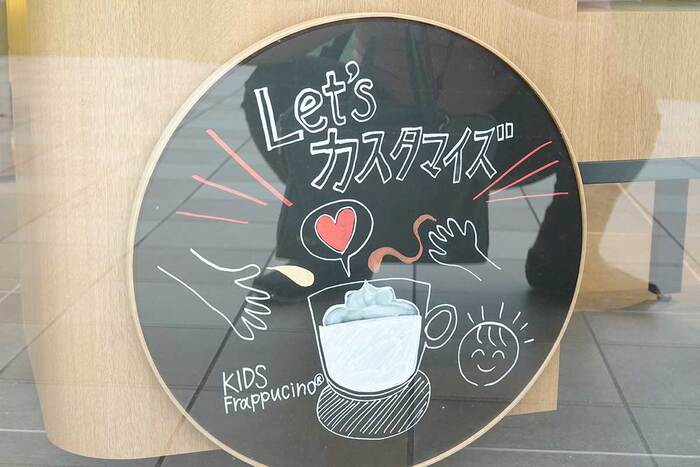 Let's
カスタマイズ
KIDS
Frappucino®